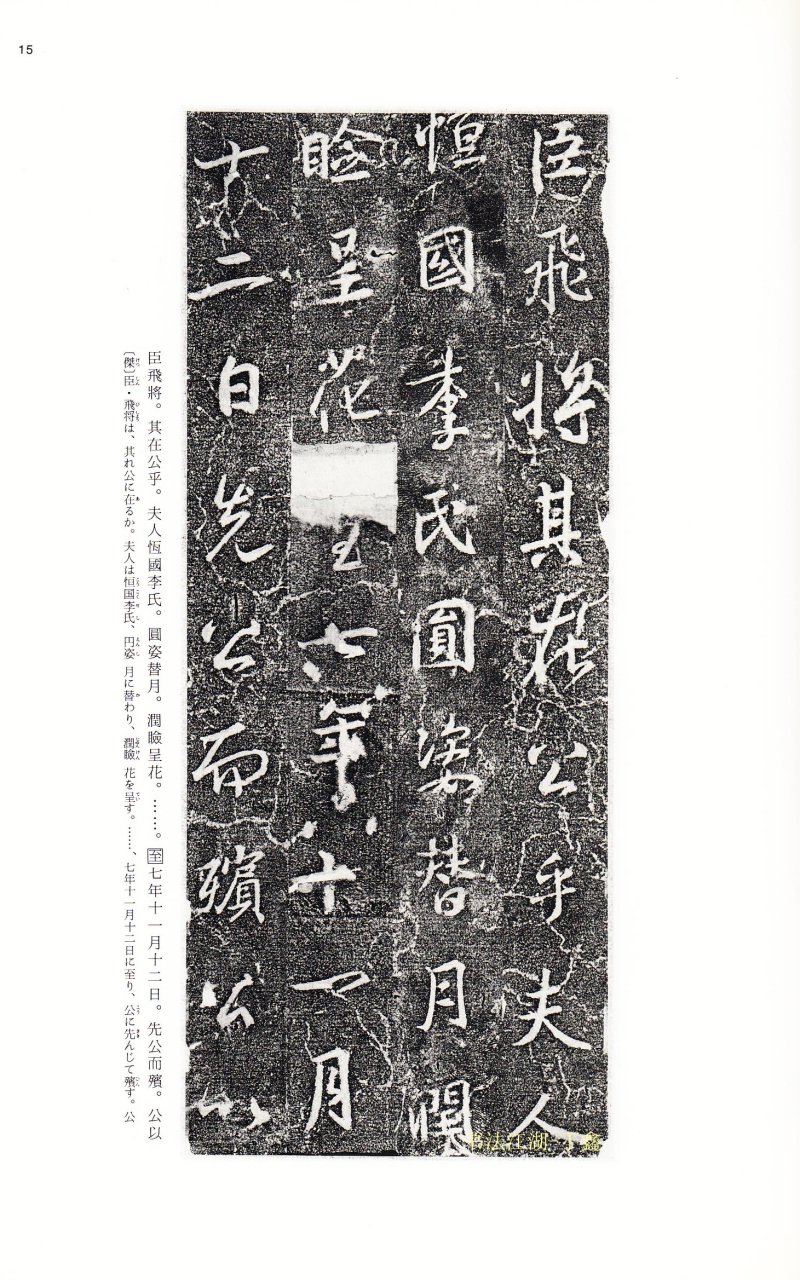 15
臣飛將其在公乎夫人
恒國李氏圓姿替月潤
瞼呈花至七年十一月
十二日先公而殯公以
臣飛將。其在公乎。夫人恆國李氏。圓姿替月。潤瞼呈花。……。至七年十一月十二日。先公而殯。公以
〔傑〕臣・飛将は、其れ公に在るか。夫人は恒国李氏、円姿 月に替わり、潤瞼 花を呈す。……、七年十一月十二日に至り、公に先んじて殯す。公
书法江湖 丁鑫